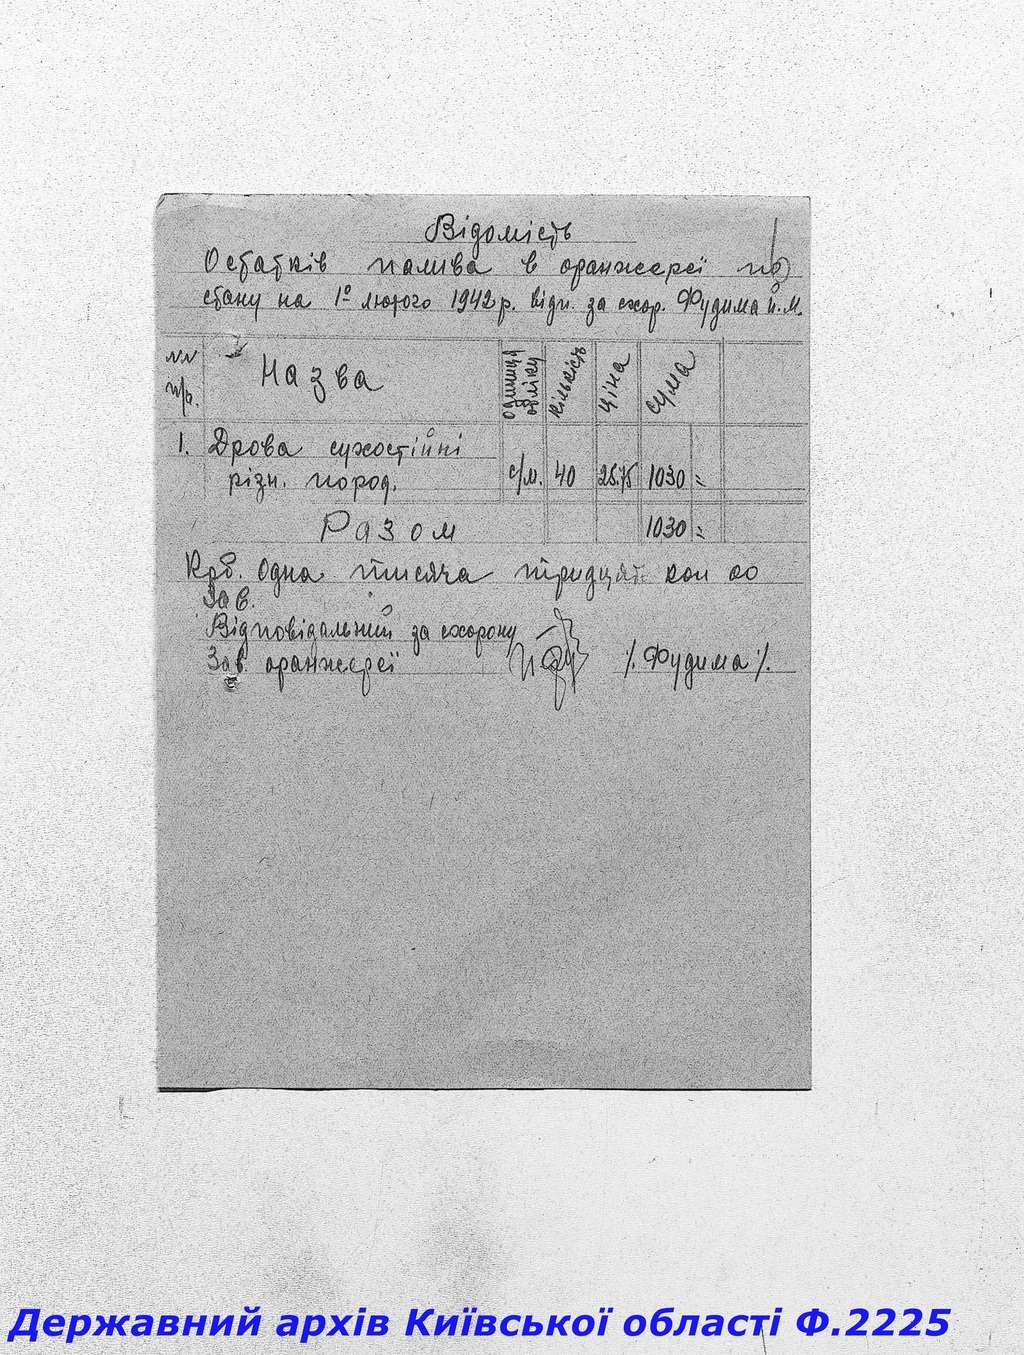 Відомість
Остатків палива в оранжереї по
стану на 1º лютого 1942 р. відп. за схор. Фудима Й.М.
NN п/п. Назва одиниця обліку кількість ціна сума
1. Дрова сухостійні
різн. пород. с/м. 40 25.75 1030 =
Разом 1030 =
Крб. Одна тисяча тридцять коп 00
Зав.
Відповідальний за схорону
Зав. оранжереї /. Фудима /.
Державний архів Київської області Ф.2225